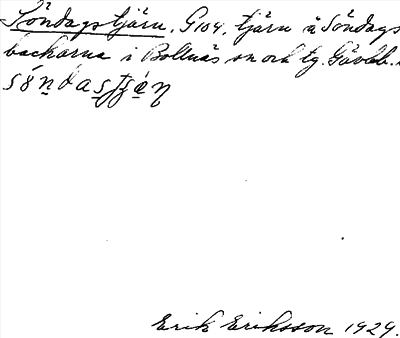 Söndagstjärn. G104. tjärn å Söndags
backarna i Bollnäs sn och tg. Gävleb.
Erik Eriksson 1929.